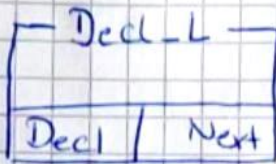 Decl_L
Decl Next